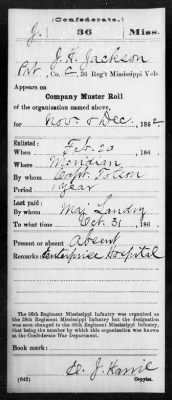 (Confederate.)
J. 36 Miss.
J. H. Jackson
Pvt, Co. C, 36 Reg't Mississippi Vols.
Appears on
Company Muster Roll
of the organization named above,
for Nov. & Dec., 1862
Enlisted:
When Feb. 20, 186 .
Where Meridian
By whom Capt.
Period 1 year
Last paid:
By whom Maj Landry
To what time Oct. 31, 186 .
Present or absent Absent
Remarks: Enterprise Hospital
The 36th Regiment Mississippi Infantry was organized as
the 28th Regiment Mississippi Infantry but the designation
was soon changed to the 36th Regiment Mississippi Infantry,
that being the number by which it was always known at
the Confederate War Department.
Book mark:
(642)
Copyist.